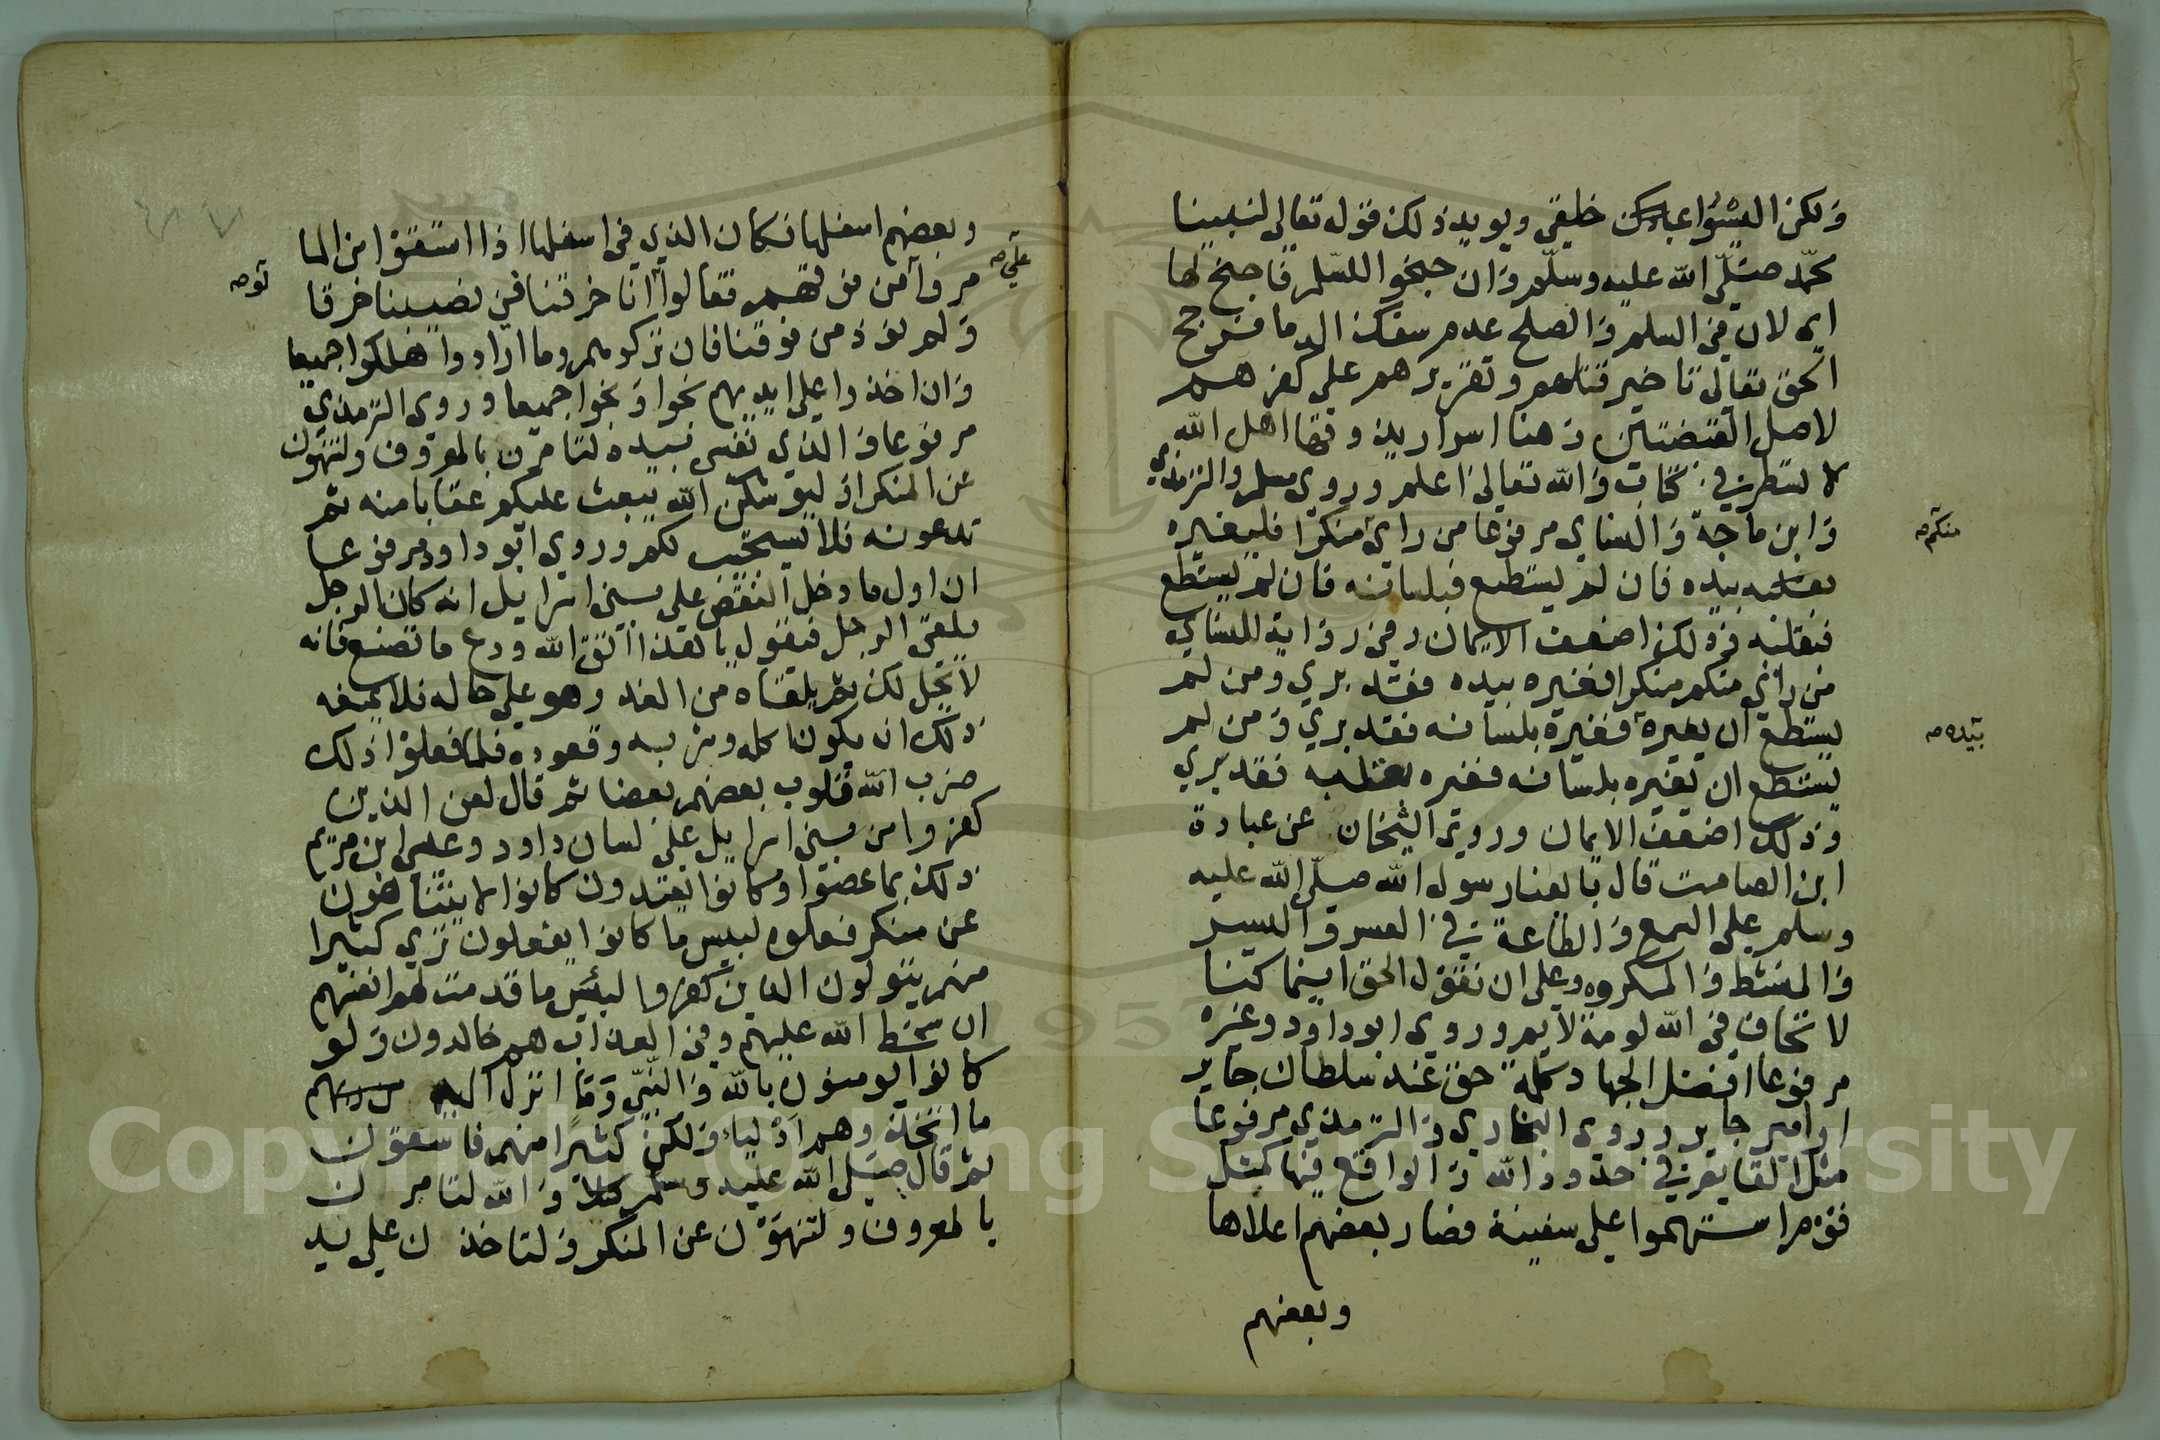 ولكن اليسوا عبادك خليقي ويويد ذلك قوله تعالى لنبينا
محمد صلى الله عليه وسلم وان جنحوا للسلم فاجنح لها
اي لان في السلم والصلح عدم سفك الدما فرجح
الحق تعالى تاخير قتالهم وتقريرهم على كفرهم
لاصل القبضتين وهنا اسرار يذوقها اهل الله
لا تسطر في كتاب والله تعالى اعلم وروى مسلم والترمذي
وابن ماجة والنساي مرفوعا من راى منكرا فليغيره
منكم صح
بيده فان لم يستطع فبلسانه فان لم يستطع
فبقلبه وذلك اضعف الايمان وفي رواية للنساي
من راى منكم منكرا فغيره بيده فقد بري ومن لم
يستطع ان يغيره فغيره بلسانه فقد بري ومن لم
بيده صح
يستطع ان يغيره بلسانه فغيره بقلبه فقد بري
وذلك اضعف الايمان وروى الشيخان عن عبادة
ابن الصامت قال بايعنا رسول الله صلى الله عليه
وسلم على السمع والطاعة في العسر واليسر
والمنشط والمكروه وعلى ان نقول الحق اينما كنا
لا نخاف في الله لومة لايم وروى ابو داود وغيره
مرفوعا افضل الجهاد كلمة حق عند سلطان جاير
او امير جاير وروى البخاري والترمذي مرفوعا
مثل القايم في حدود الله والواقع فيها كمثل
قوم استهموا على سفينة فصار بعضهم اعلاها
وبعضهم
وبعضهم اسفلها فكان الذي في اسفلها اذا استقوا من الما
على صح
مروا من فوقهم فقالوا انا خرقنا في نصيبنا خرقا
لو صح
ولم نوذ من فوقنا فان تركوهم وما ارادوا هلكوا جميعا
وان اخذوا على ايديهم نجوا ونجوا جميعا وروى الترمذي
مرفوعا والذي نفسي بيده لتامرن بالمعروف ولتنهون
عن المنكر او ليوشكن الله يبعث عليكم عقابا منه ثم
تدعونه فلا يستجيب لكم وروى ابو داود مرفوعا
ان اول ما دخل النقص على بني اسرايل انه كان الرجل
يلقى الرجل فيقول يا هذا اتق الله ودع ما تصنع فانه
لا يحل لك ثم يلقاه من الغد وهو على حاله فلا يمنعه
ذلك ان يكون اكله وشريبه وقعوده فلما فعلوا ذلك
ضرب الله قلوب بعضهم بعضا ثم قال لعن الذين
كفروا من بني اسرايل على لسان داود وعيسى ابن مريم
ذلك بما عصوا وكانوا يعتدون كانوا لا يتناهون
عن منكر فعلوه لبيس ما كانوا يفعلون ترى كثيرا
منهم يتولون الذين كفروا لبئس ما قدمت لهم انفسهم
ان سخط الله عليهم وفي العذاب هم خالدون ولو
كانوا يومنون بالله والنبي وما انزل اليه
ما اتخذوهم اوليا ولكن كثيرا منهم فاسقون
ثم قال صلى الله عليه وسلم كلا والله لتامرن
بالمعروف ولتنهون عن المنكر ولتاخذن على يد